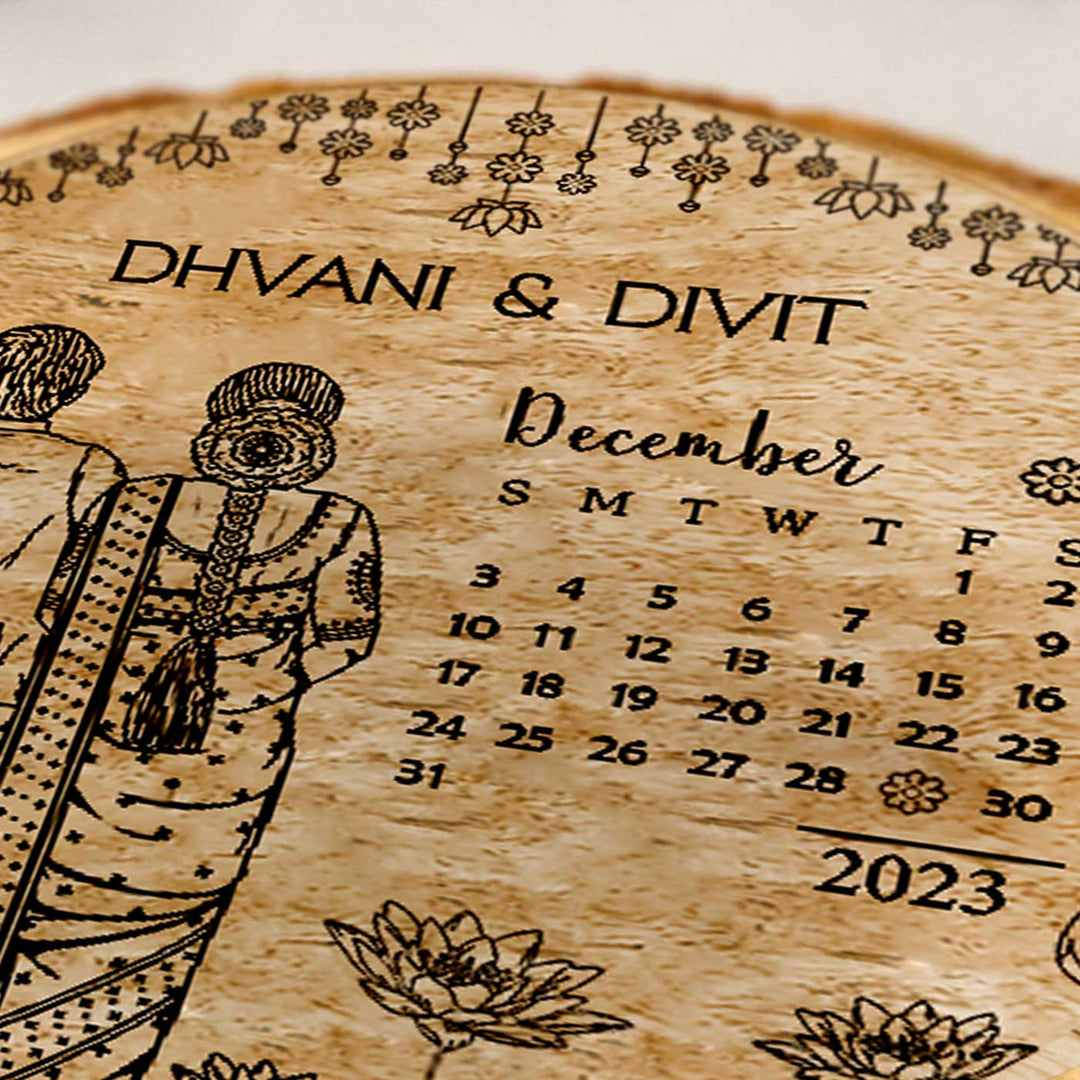 DHVANI & DIVIT
December
S M T W T F S
1 2
3 4 5 6 7 8 9
10 11 12 13 14 15 16
17 18 19 20 21 22 23
24 25 26 27 28 30
31
2023